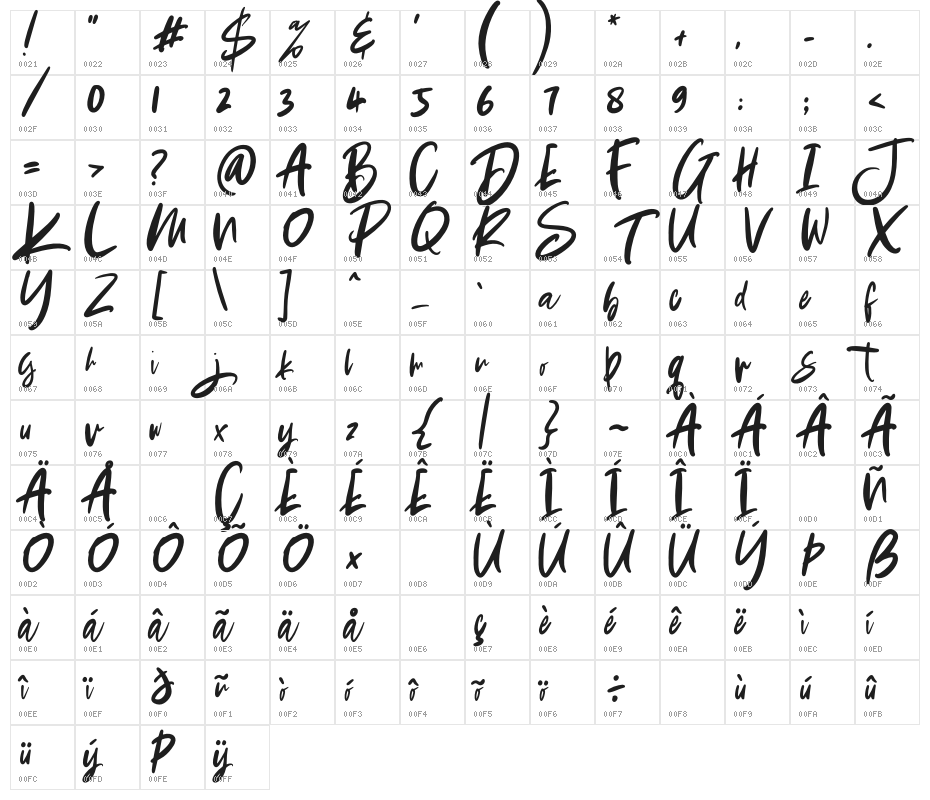 ! " # $ % & ' ( ) * + , - .
0021 0022 0023 0024 0025 0026 0027 0028 0029 002A 002B 002C 002D 002E
/ 0 1 2 3 4 5 6 7 8 9 : ; <
002F 0030 0031 0032 0033 0034 0035 0036 0037 0038 0039 003A 003B 003C
= > ? @ A B C D E F G H I J
003D 003E 003F 0040 0041 0042 0043 0044 0045 0046 0047 0048 0049 004A
K L M N O P Q R S T U V W X
004B 004C 004D 004E 004F 0050 0051 0052 0053 0054 0055 0056 0057 0058
Y Z [ \ ] ^ _ ` a b c d e f
0059 005A 005B 005C 005D 005E 005F 0060 0061 0062 0063 0064 0065 0066
g h i j k l m n o p q r s t
0067 0068 0069 006A 006B 006C 006D 006E 006F 0070 0071 0072 0073 0074
u v w x y z { | } ~ À Á Â Ã
0075 0076 0077 0078 0079 007A 007B 007C 007D 007E 00C0 00C1 00C2 00C3
Ä Å Ç È É Ê Ë Ì Í Î Ï Ñ
00C4 00C5 00C6 00C7 00C8 00C9 00CA 00CB 00CC 00CD 00CE 00CF 00D0 00D1
Ò Ó Ô Õ Ö × Ù Ú Û Ü Ý Þ ß
00D2 00D3 00D4 00D5 00D6 00D7 00D8 00D9 00DA 00DB 00DC 00DD 00DE 00DF
à á â ã ä å ç è é ê ë ì í
00E0 00E1 00E2 00E3 00E4 00E5 00E6 00E7 00E8 00E9 00EA 00EB 00EC 00ED
î ï ð ñ ò ó ô õ ö ÷ ù ú û
00EE 00EF 00F0 00F1 00F2 00F3 00F4 00F5 00F6 00F7 00F8 00F9 00FA 00FB
ü ý þ ÿ
00FC 00FD 00FE 00FF